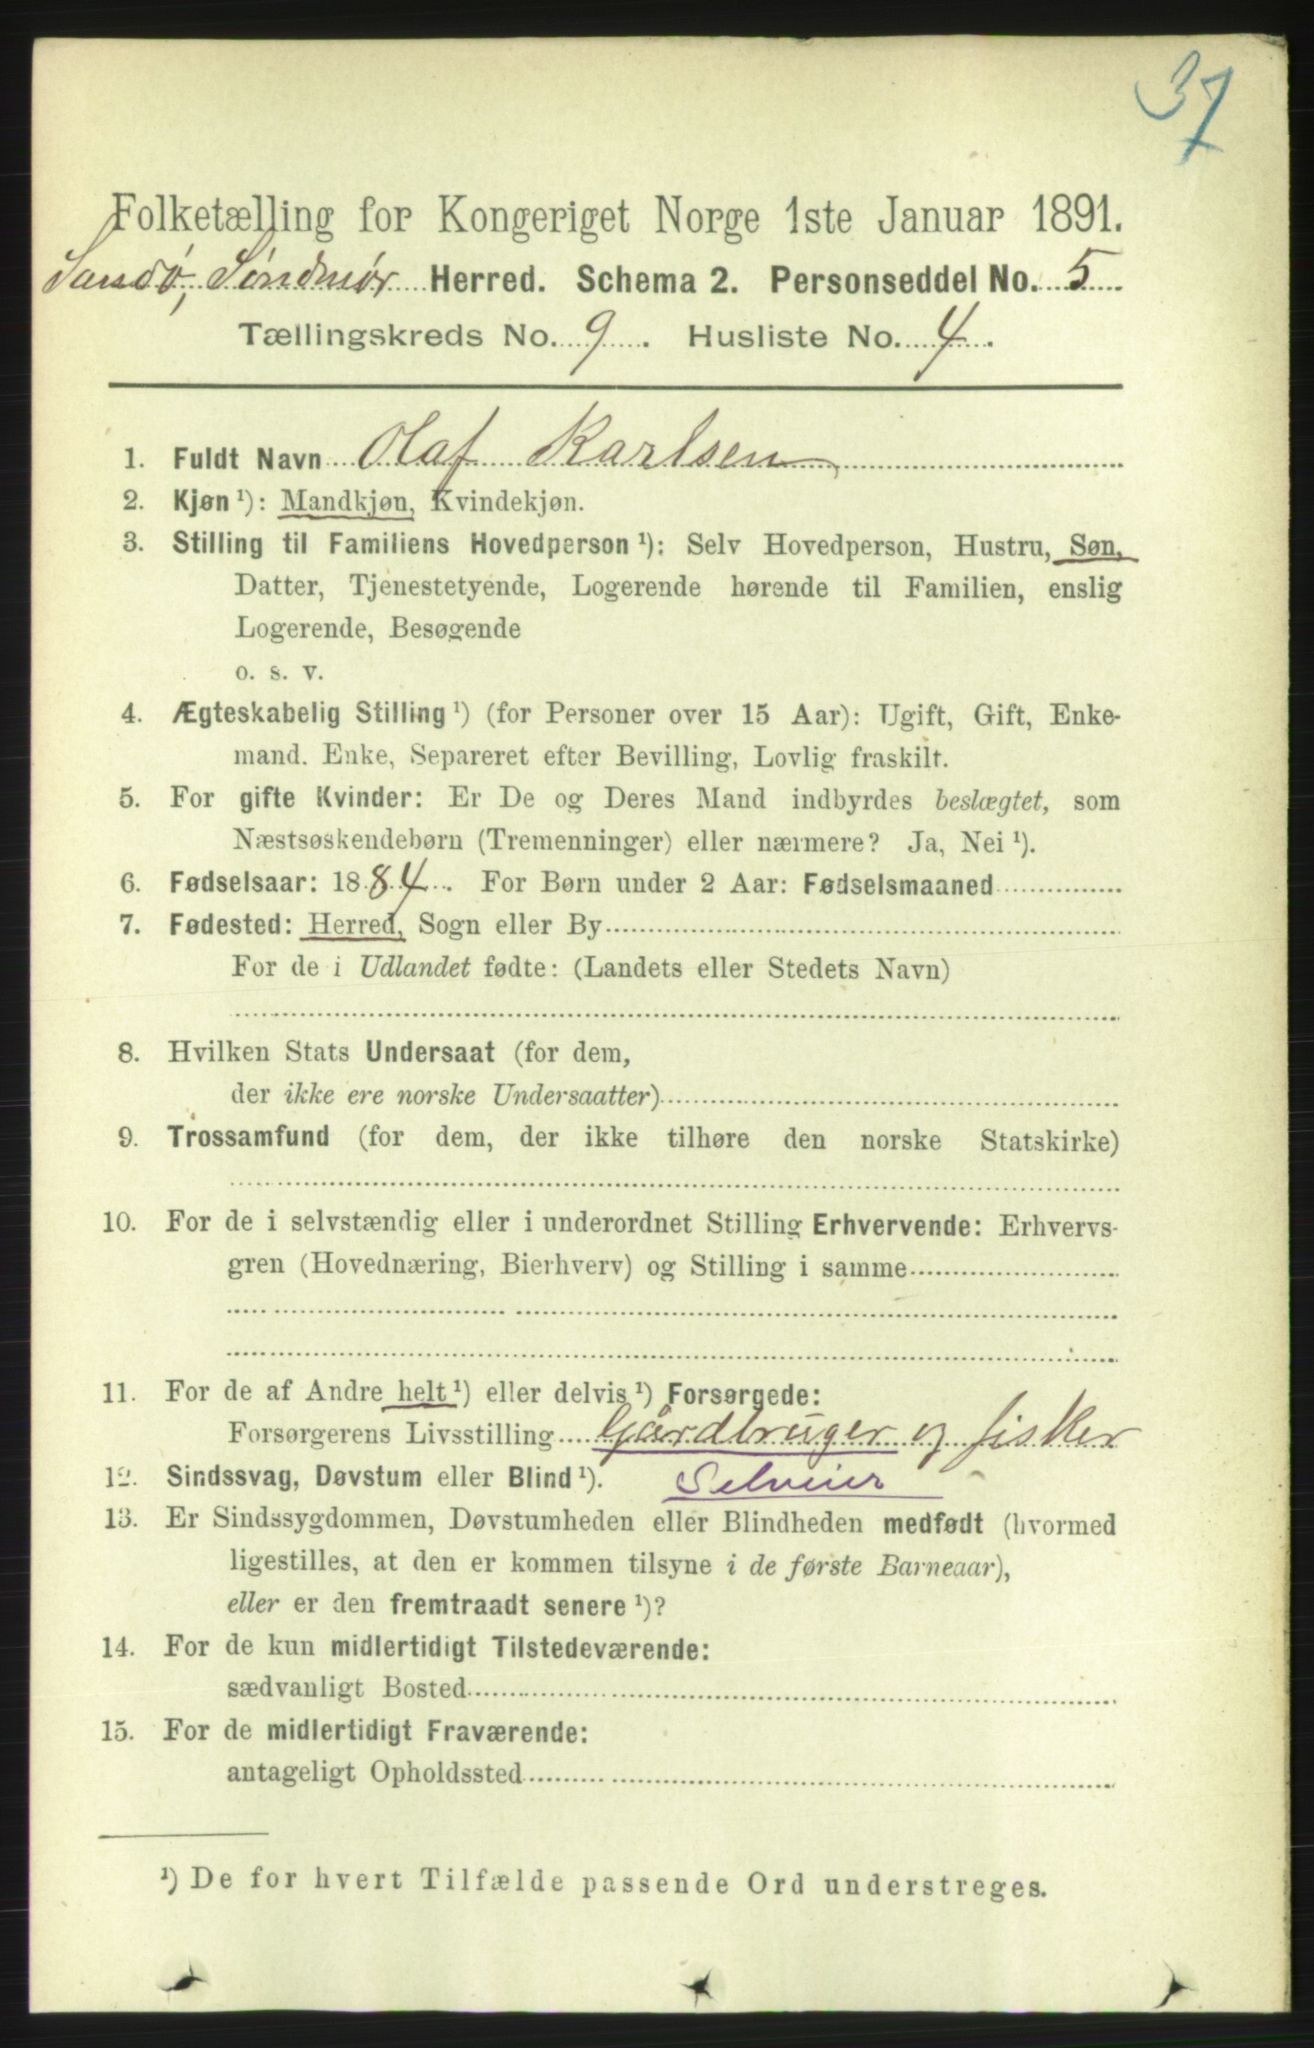 37
Folketælling for Kongeriget Norge 1ste Januar 1891.
Sandø, Søndmør Herred. Schema 2. Personseddel No. 5
Tællingskreds No. 9. Husliste No. 4.
1. Fuldt Navn Olaf Karlsen
2. Kjøn ¹): Mandkjøn, Kvindekjøn.
3. Stilling til Familiens Hovedperson ¹): Selv Hovedperson, Hustru, Søn,
Datter, Tjenestetyende, Logerende hørende til Familien, enslig
Logerende, Besøgende
o. s. v.
4. Ægteskabelig Stilling ¹) (for Personer over 15 Aar): Ugift, Gift, Enke-
mand. Enke, Separeret efter Bevilling, Lovlig fraskilt.
5. For gifte Kvinder: Er De og Deres Mand indbyrdes beslægtet, som
Næstsøskendebørn (Tremenninger) eller nærmere? Ja, Nei ¹).
6. Fødselsaar: 1884. For Børn under 2 Aar: Fødselsmaaned
7. Fødested: Herred, Sogn eller By
For de i Udlandet fødte: (Landets eller Stedets Navn)
8. Hvilken Stats Undersaat (for dem,
der ikke ere norske Undersaatter)
9. Trossamfund (for dem, der ikke tilhøre den norske Statskirke)
10. For de i selvstændig eller i underordnet Stilling Erhvervende: Erhvervs-
gren (Hovednæring, Bierhverv) og Stilling i samme
11. For de af Andre helt ¹) eller delvis ¹) Forsørgede:
Forsørgerens Livsstilling Gårdbruger og fisker
12. Sindssvag, Døvstum eller Blind ¹). Selveier
13. Er Sindssygdommen, Døvstumheden eller Blindheden medfødt (hvormed
ligestilles, at den er kommen tilsyne i de første Barneaar),
eller er den fremtraadt senere ¹)?
14. For de kun midlertidigt Tilstedeværende:
sædvanligt Bosted
15. For de midlertidigt Fraværende:
antageligt Opholdssted
¹) De for hvert Tilfælde passende Ord understreges.